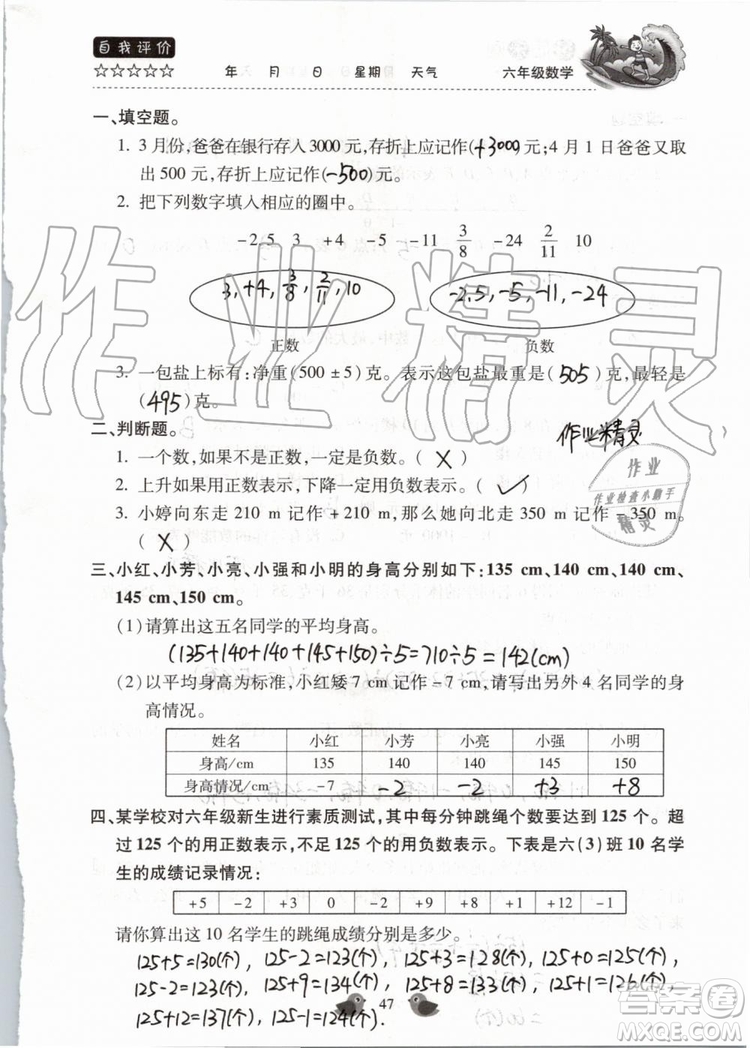 自我评价
☆☆☆☆☆ 年 月 日 星期 天气 六年级数学
一、填空题。
1. 3月份,爸爸在银行存入3000元,存折上应记作(+3000)元;4月1日爸爸又取
出500元,存折上应记作(-500)元。
2. 把下列数字填入相应的圈中。
-2.5 3 +4 -5 -11 3/8 -24 2/11 10
3,+4,3/8,2/11,10 -2.5,-5,-11,-24
正数 负数
3. 一包盐上标有:净重(500±5)克。表示这包盐最重是(505)克,最轻是
(495)克。
作业精灵
二、判断题。
1. 一个数,如果不是正数,一定是负数。(X)
2. 上升如果用正数表示,下降一定用负数表示。(✓)
3. 小婷向东走210 m记作+210 m,那么她向北走350 m记作-350 m。
(X)
作业
作业检查小助手
精灵
三、小红、小芳、小亮、小强和小明的身高分别如下:135 cm、140 cm、140 cm、
145 cm、150 cm。
(1)请算出这五名同学的平均身高。
(135+140+140+145+150)÷5=710÷5=142(cm)
(2)以平均身高为标准,小红矮7 cm记作-7 cm,请写出另外4名同学的身
高情况。
姓名 小红 小芳 小亮 小强 小明
身高/cm 135 140 140 145 150
身高情况/cm -7 -2 -2 +3 +8
四、某学校对六年级新生进行素质测试,其中每分钟跳绳个数要达到125个。超
过125个的用正数表示,不足125个的用负数表示。下表是六(3)班10名学
生的成绩记录情况:
+5 -2 +3 0 -2 +9 +8 +1 +12 -1
请你算出这10名学生的跳绳成绩分别是多少。
125+5=130(个) 125-2=123(个) 125+3=128(个) 125+0=125(个)
125-2=123(个) 125+9=134(个) 125+8=133(个) 125+1=126(个)
125+12=137(个) 125-1=124(个).
47
作业精灵
答案圈
MXQE.COM